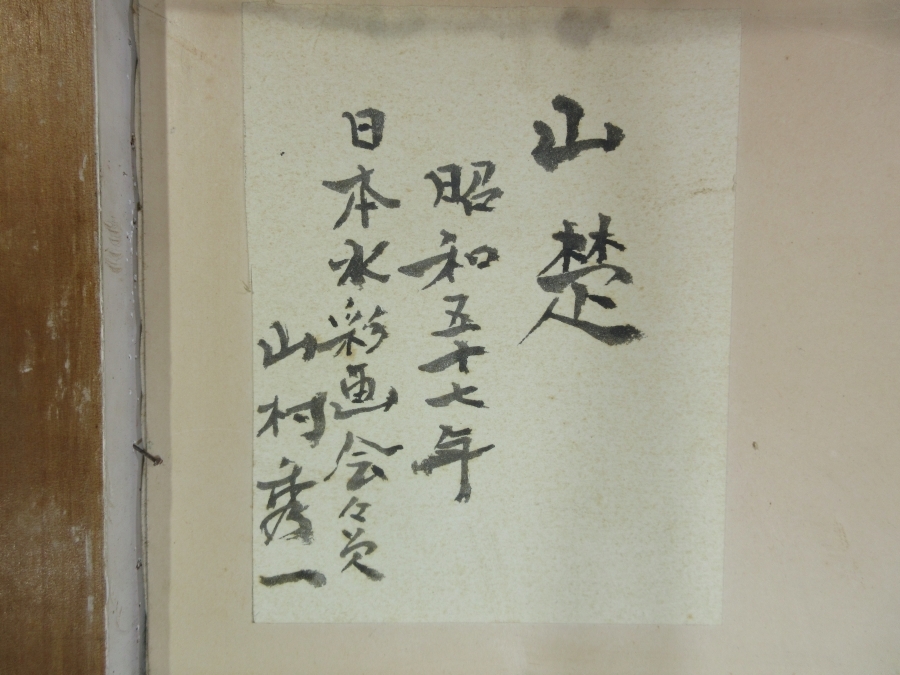 山楚
昭和五十七年
日本水彩画会々員
山村秀一